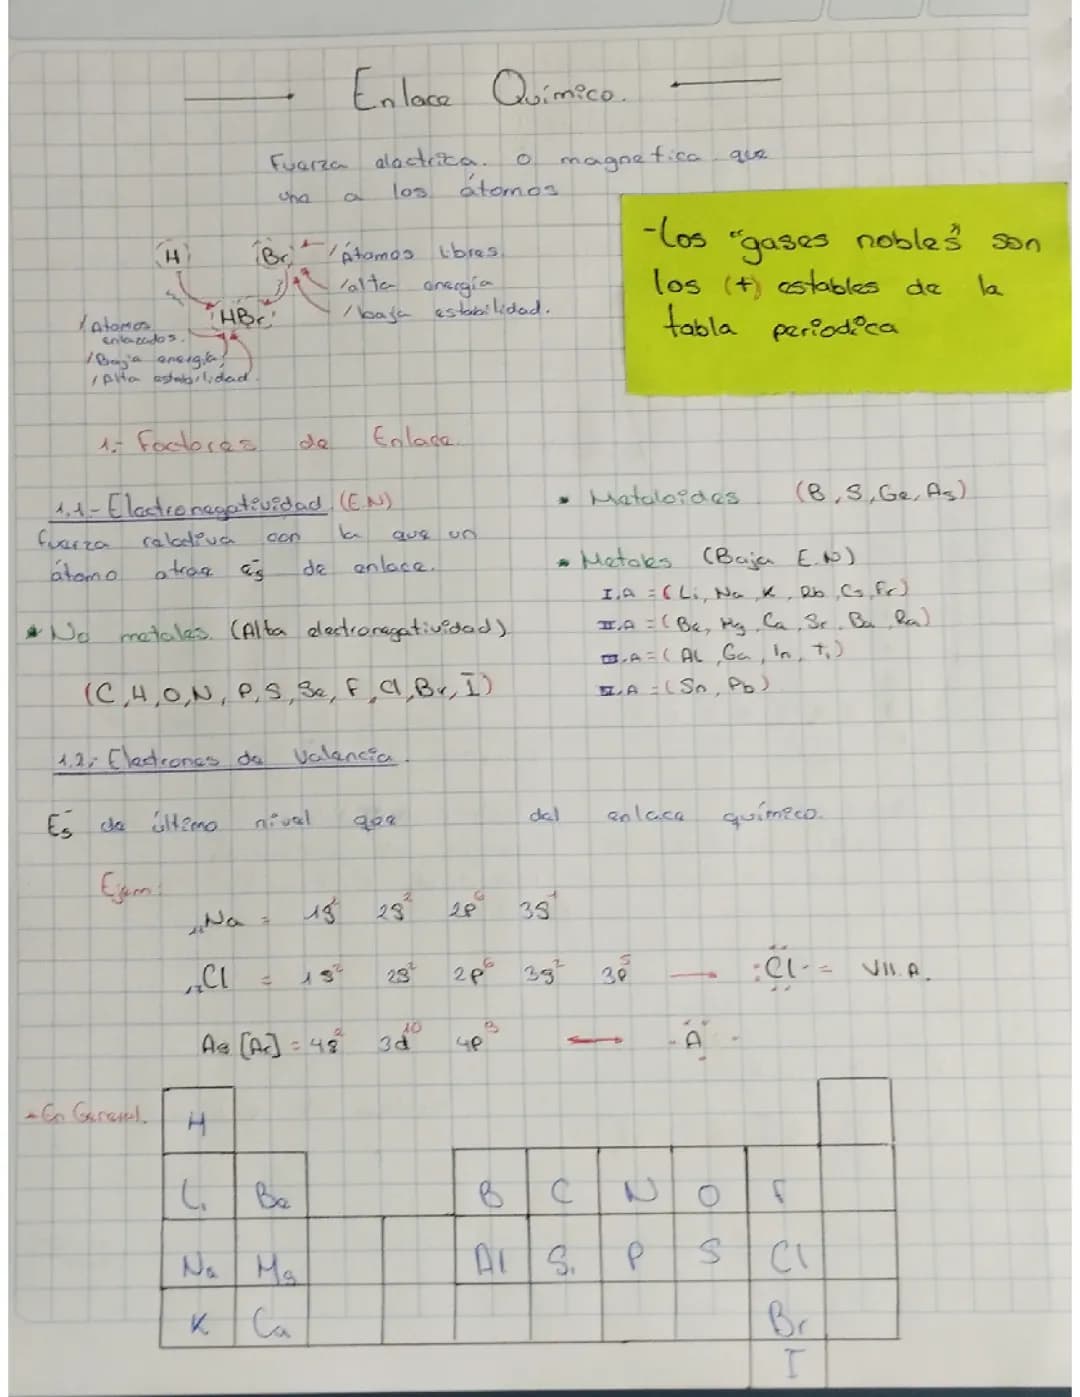 Enlace Químico.
Fuerza electrica. o magnetica que
une a los átomos
-Los "gases nobles" son
los (+) estables de la
tabla periodica
H Br / Átomos libres.
/alta energía
/ baja estabilidad.
HBr
/Atomos
enlazados.
/Baja energía
/Alta estabilidad.
1.- Factores de Enlace.
1.1- Electronegatividad (E.N)
fuerza relativa con la que un
átomo atrae es de enlace.
* No metales. (Alta electronegatividad)
(C,H,O,N,P,S,Se,F,Cl,Br,I)
* Metaloides (B,S,Ge,As)
* Metales (Baja E.N)
I.A = (Li, Na, K, Rb, Cs, Fr)
II.A = (Be, Mg, Ca, Sr, Ba, Ra)
III.A = (AL, Ga, In, Ti)
IV.A = (Sn, Pb)
1.2.- Electrones de Valencia.
Es de último nivel que del enlace químico.
Ejem:
11Na = 1s² 2s² 2p⁶ 3s¹
17Cl = 1s² 2s² 2p⁶ 3s² 3p⁵ → :Cl· = VII.A.
As [Ar] = 4s² 3d¹⁰ 4p³ · A ·
- En General.
H
Li Be B C N O F
Na Mg Al Si P S Cl
K Ca Br
I